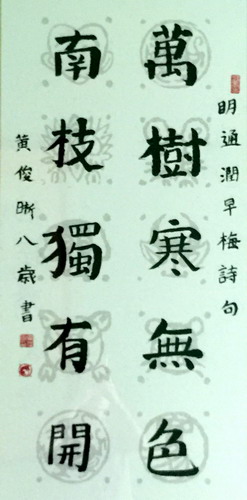 明通潤早梅詩句
萬樹寒無色
南枝獨有開
黃俊晰八歲書